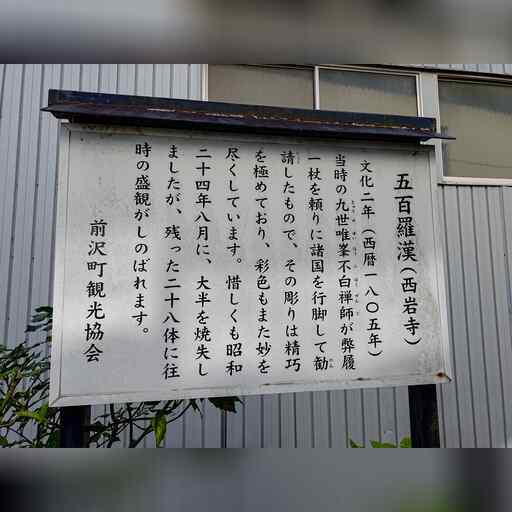 五百羅漢(西岩寺)
文化二年(西暦一八〇五年)
当時の九世唯峯不白禅師が弊履
一杖を頼りに諸国を行脚して勧
請したもので、その彫りは精巧
を極めており、彩色もまた妙を
尽くしています。惜しくも昭和
二十四年八月に、大半を焼失し
ましたが、残った二十八体に往
時の盛観がしのばれます。
前沢町観光協会